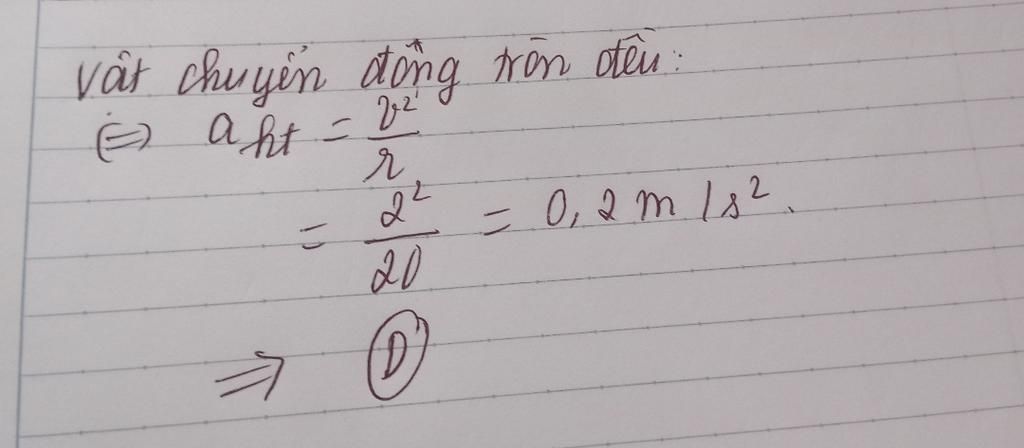 Vật chuyển động tròn đều:
(=) a ht = v²/r
= 2²/20 = 0,2 m/s².
=> D